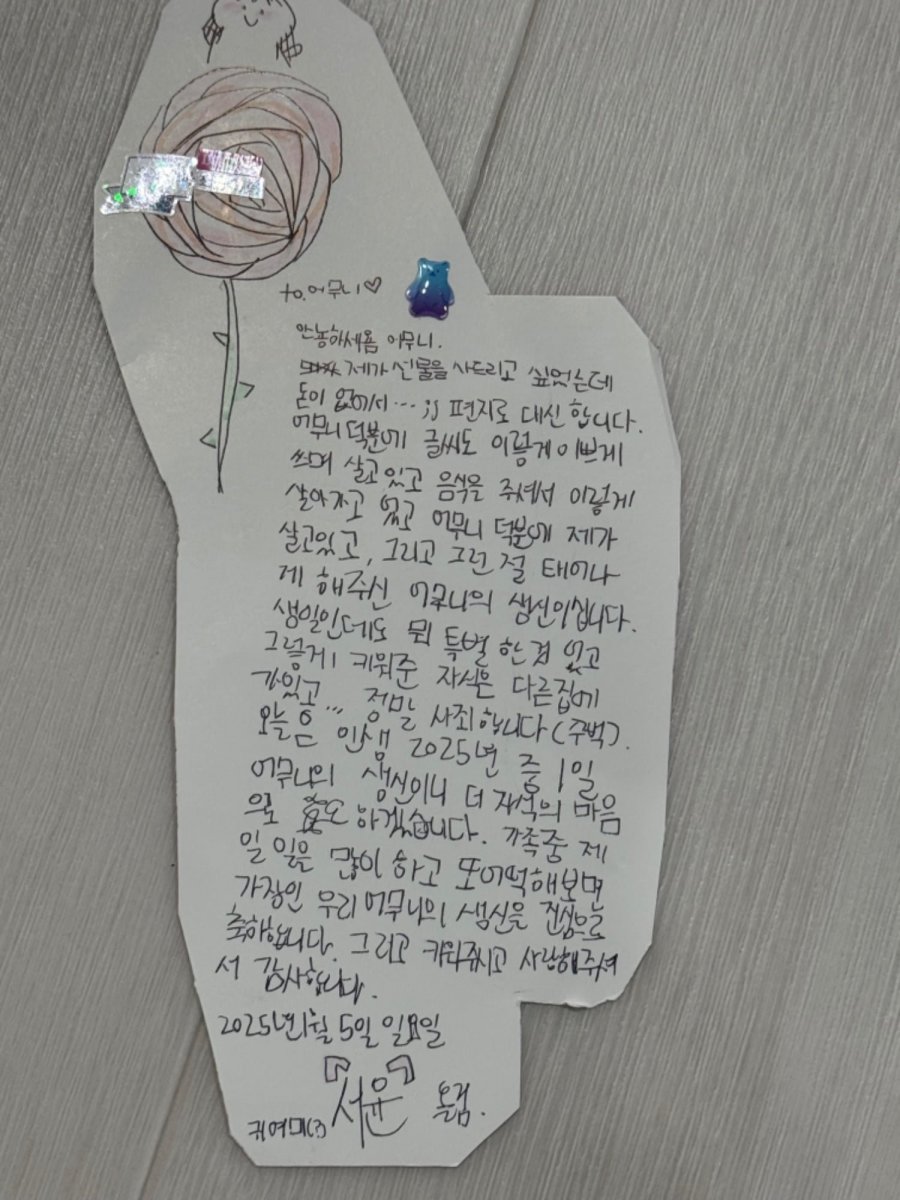 to.어무니♡
안농하세욤 어무니.
제가 선물을 사드리고 싶었는데
돈이 없어서… ;; 편지로 대신 합니다.
어무니 덕분에 글씨도 이렇게 이쁘게
쓰며 살고있고 음식을 주셔서 이렇게
살아가고 있고 어무니 덕분에 제가
살고있고, 그리고 그런 절 태어나
게 해주신 어무니의 생신이십니다.
생일인데도 뭐 특별 한 겁 없고
그렇게 키워준 자식은 다른집에
가있고… 정말 사죄합니다 (주벅).
오늘은 인생 2025년 중 1일
어무니의 생신이니 더 자식의 마음
으로 효도 하겠습니다. 가족중 제
일 일을 많이 하고 또어떡해보면
가장인 우리 어무니의 생신을 진심으로
축하합니다. 그리고 키워주시고 사랑해주셔
서 감사합니다.
2025년 1월 5일 일요일
귀여미 『서윤』 올림.